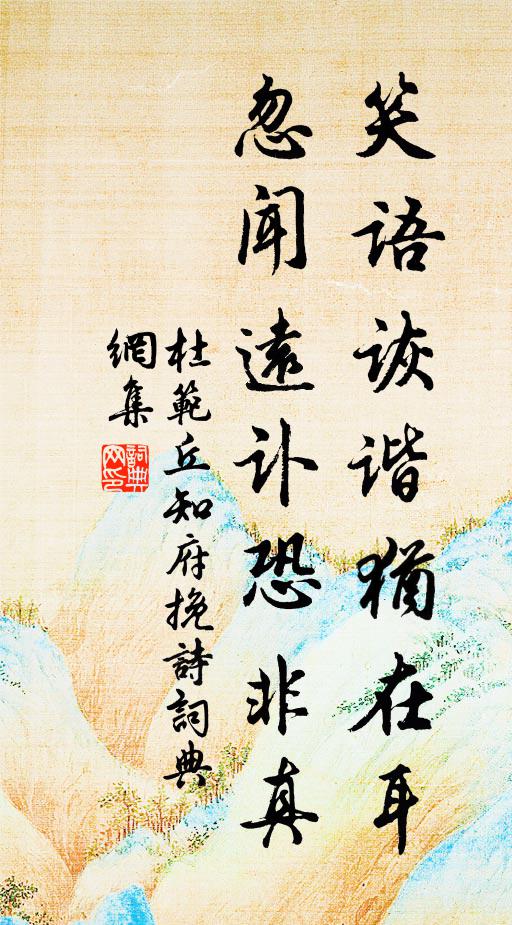 笑语诙谐犹在耳
忽闻遠讣恐非真
杜範丘知府挽詩詞典
網集
詞典
网印